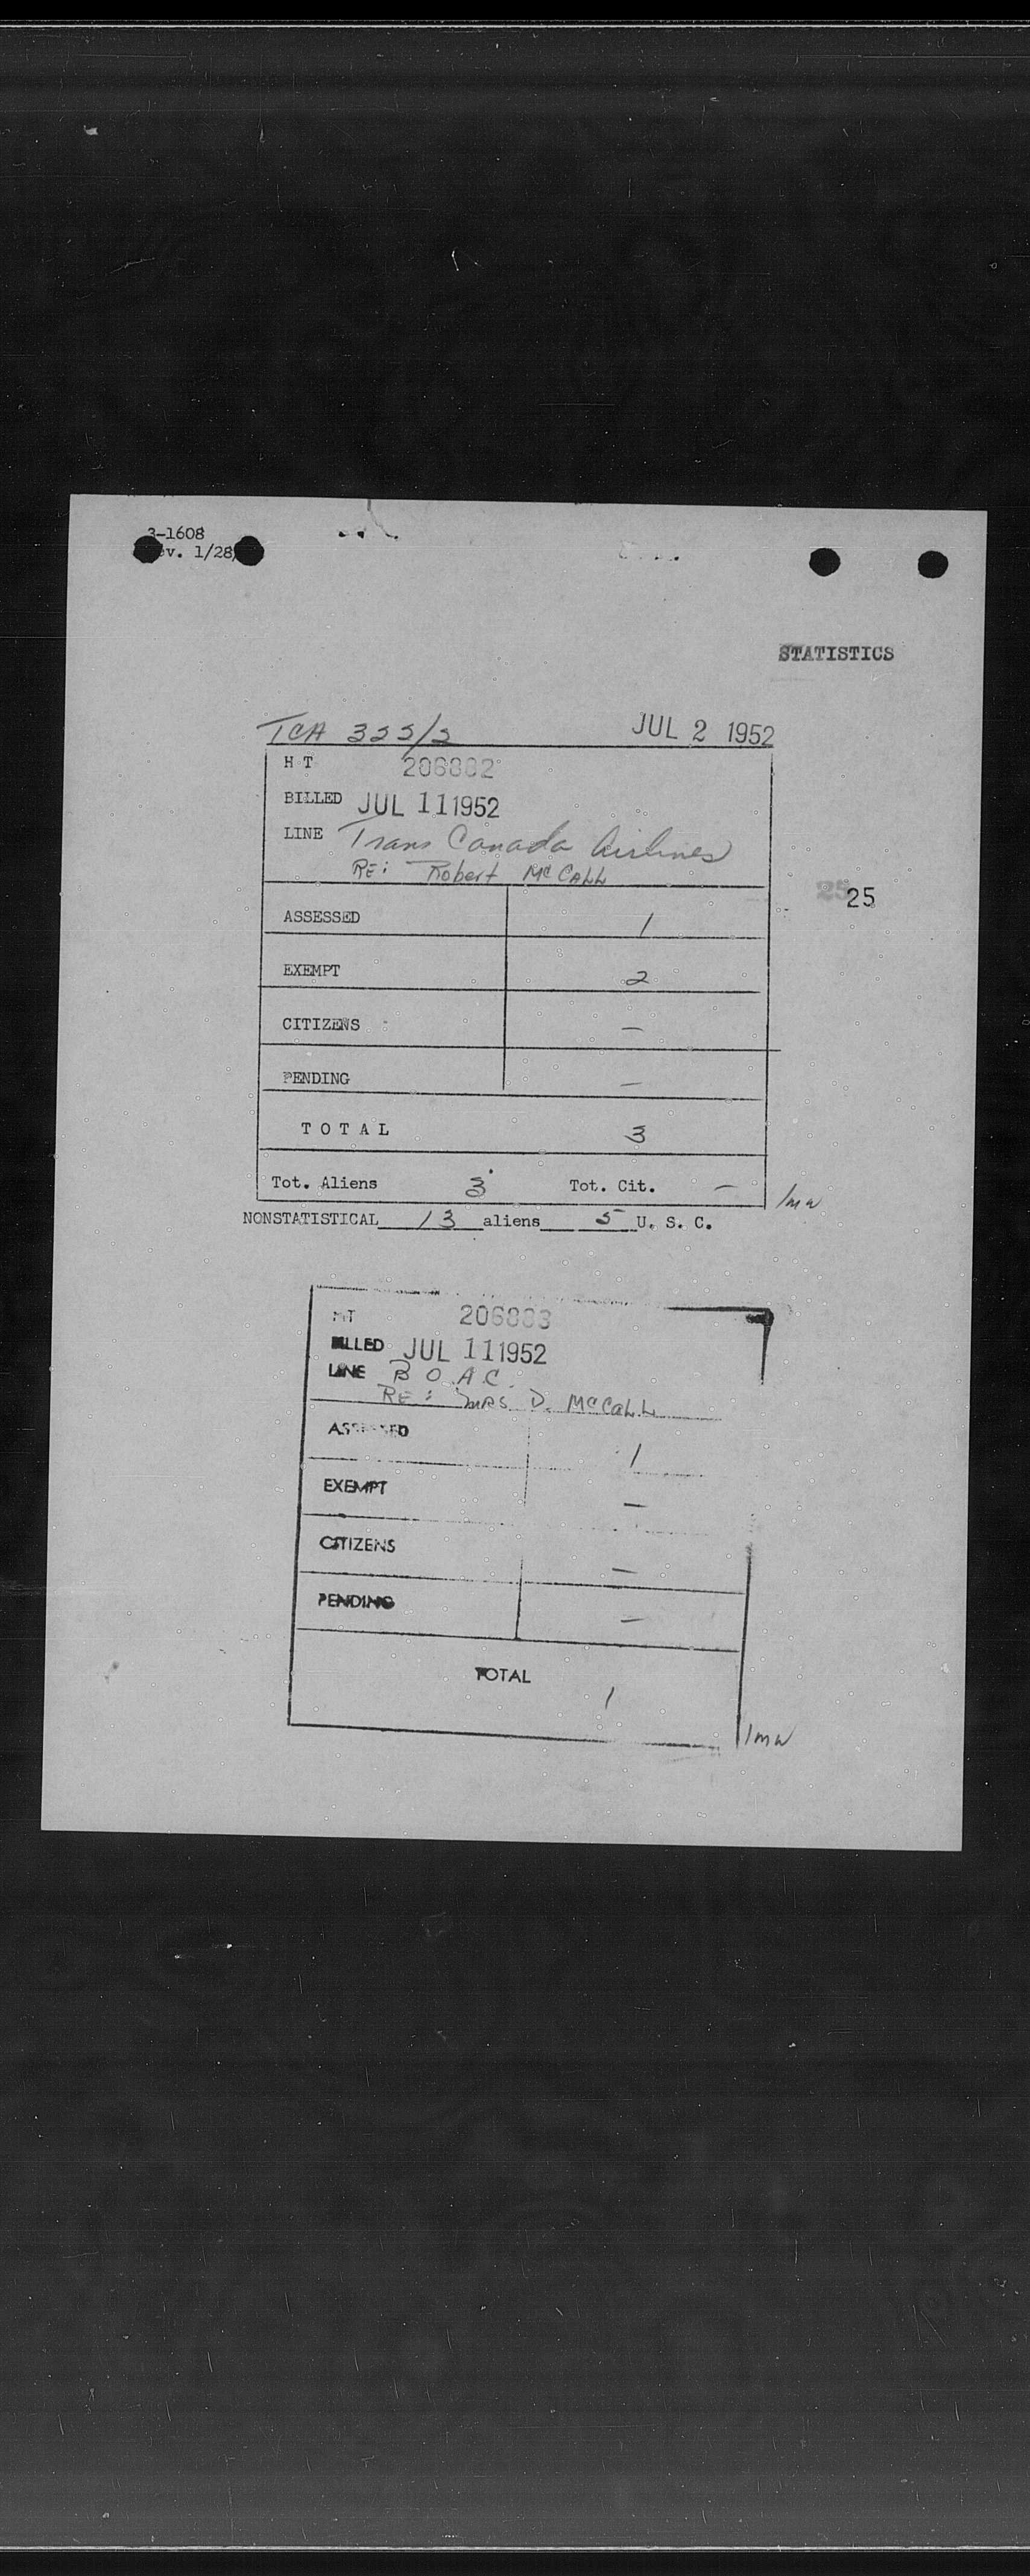 3-1608
ev. 1/28/
STATISTICS
TCA 335/2 JUL 2 1952
H T 206882
BILLED JUL 11 1952
LINE Trans Canada Airlines
RE: Robert McCall
25
ASSESSED 1
EXEMPT 2
CITIZENS —
PENDING —
TOTAL 3
Tot. Aliens 3 Tot. Cit. —
NONSTATISTICAL 13 aliens 5 U. S. C.
HT 206883
BILLED JUL 11 1952
LINE B O A C.
RE: MRS D. McCall
ASSESSED 1
EXEMPT —
CITIZENS —
PENDING —
TOTAL 1